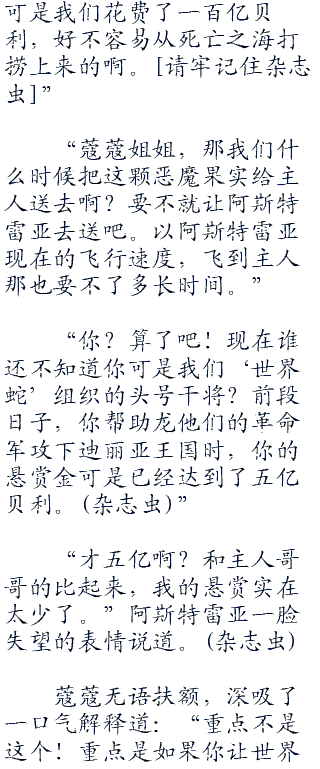 可是我们花费了一百亿贝
利，好不容易从死亡之海打
捞上来的啊。[请牢记住杂志
虫]”
“蔻蔻姐姐，那我们什
么时候把这颗恶魔果实给主
人送去啊？要不就让阿斯特
雷亚去送吧。以阿斯特雷亚
现在的飞行速度，飞到主人
那也要不了多长时间。”
“你？算了吧！现在谁
还不知道你可是我们‘世界
蛇’组织的头号干将？前段
日子，你帮助龙他们的革命
军攻下迪丽亚王国时，你的
悬赏金可是已经达到了五亿
贝利。(杂志虫)”
“才五亿啊？和主人哥
哥的比起来，我的悬赏实在
太少了。”阿斯特雷亚一脸
失望的表情说道。(杂志虫)
蔻蔻无语扶额，深吸了
一口气解释道：“重点不是
这个！重点是如果你让世界